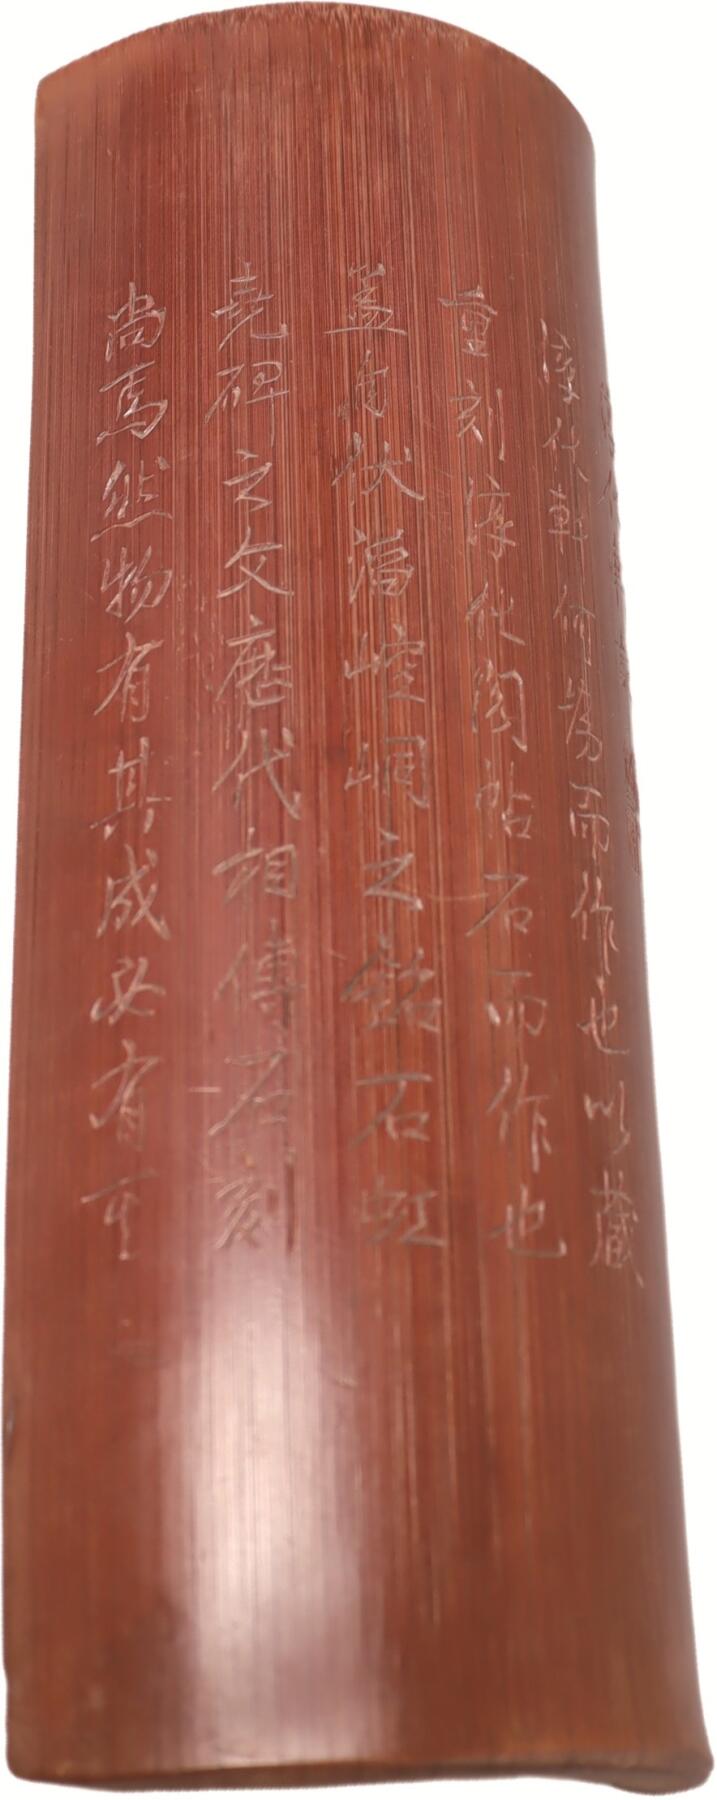 淳化軒記
淳化軒何為而作也以藏
重刻淳化閣帖石而作也
蓋自伏滔崆峒之銘石虹
堯碑之文歷代相傳石刻
尚焉然物有其成必有